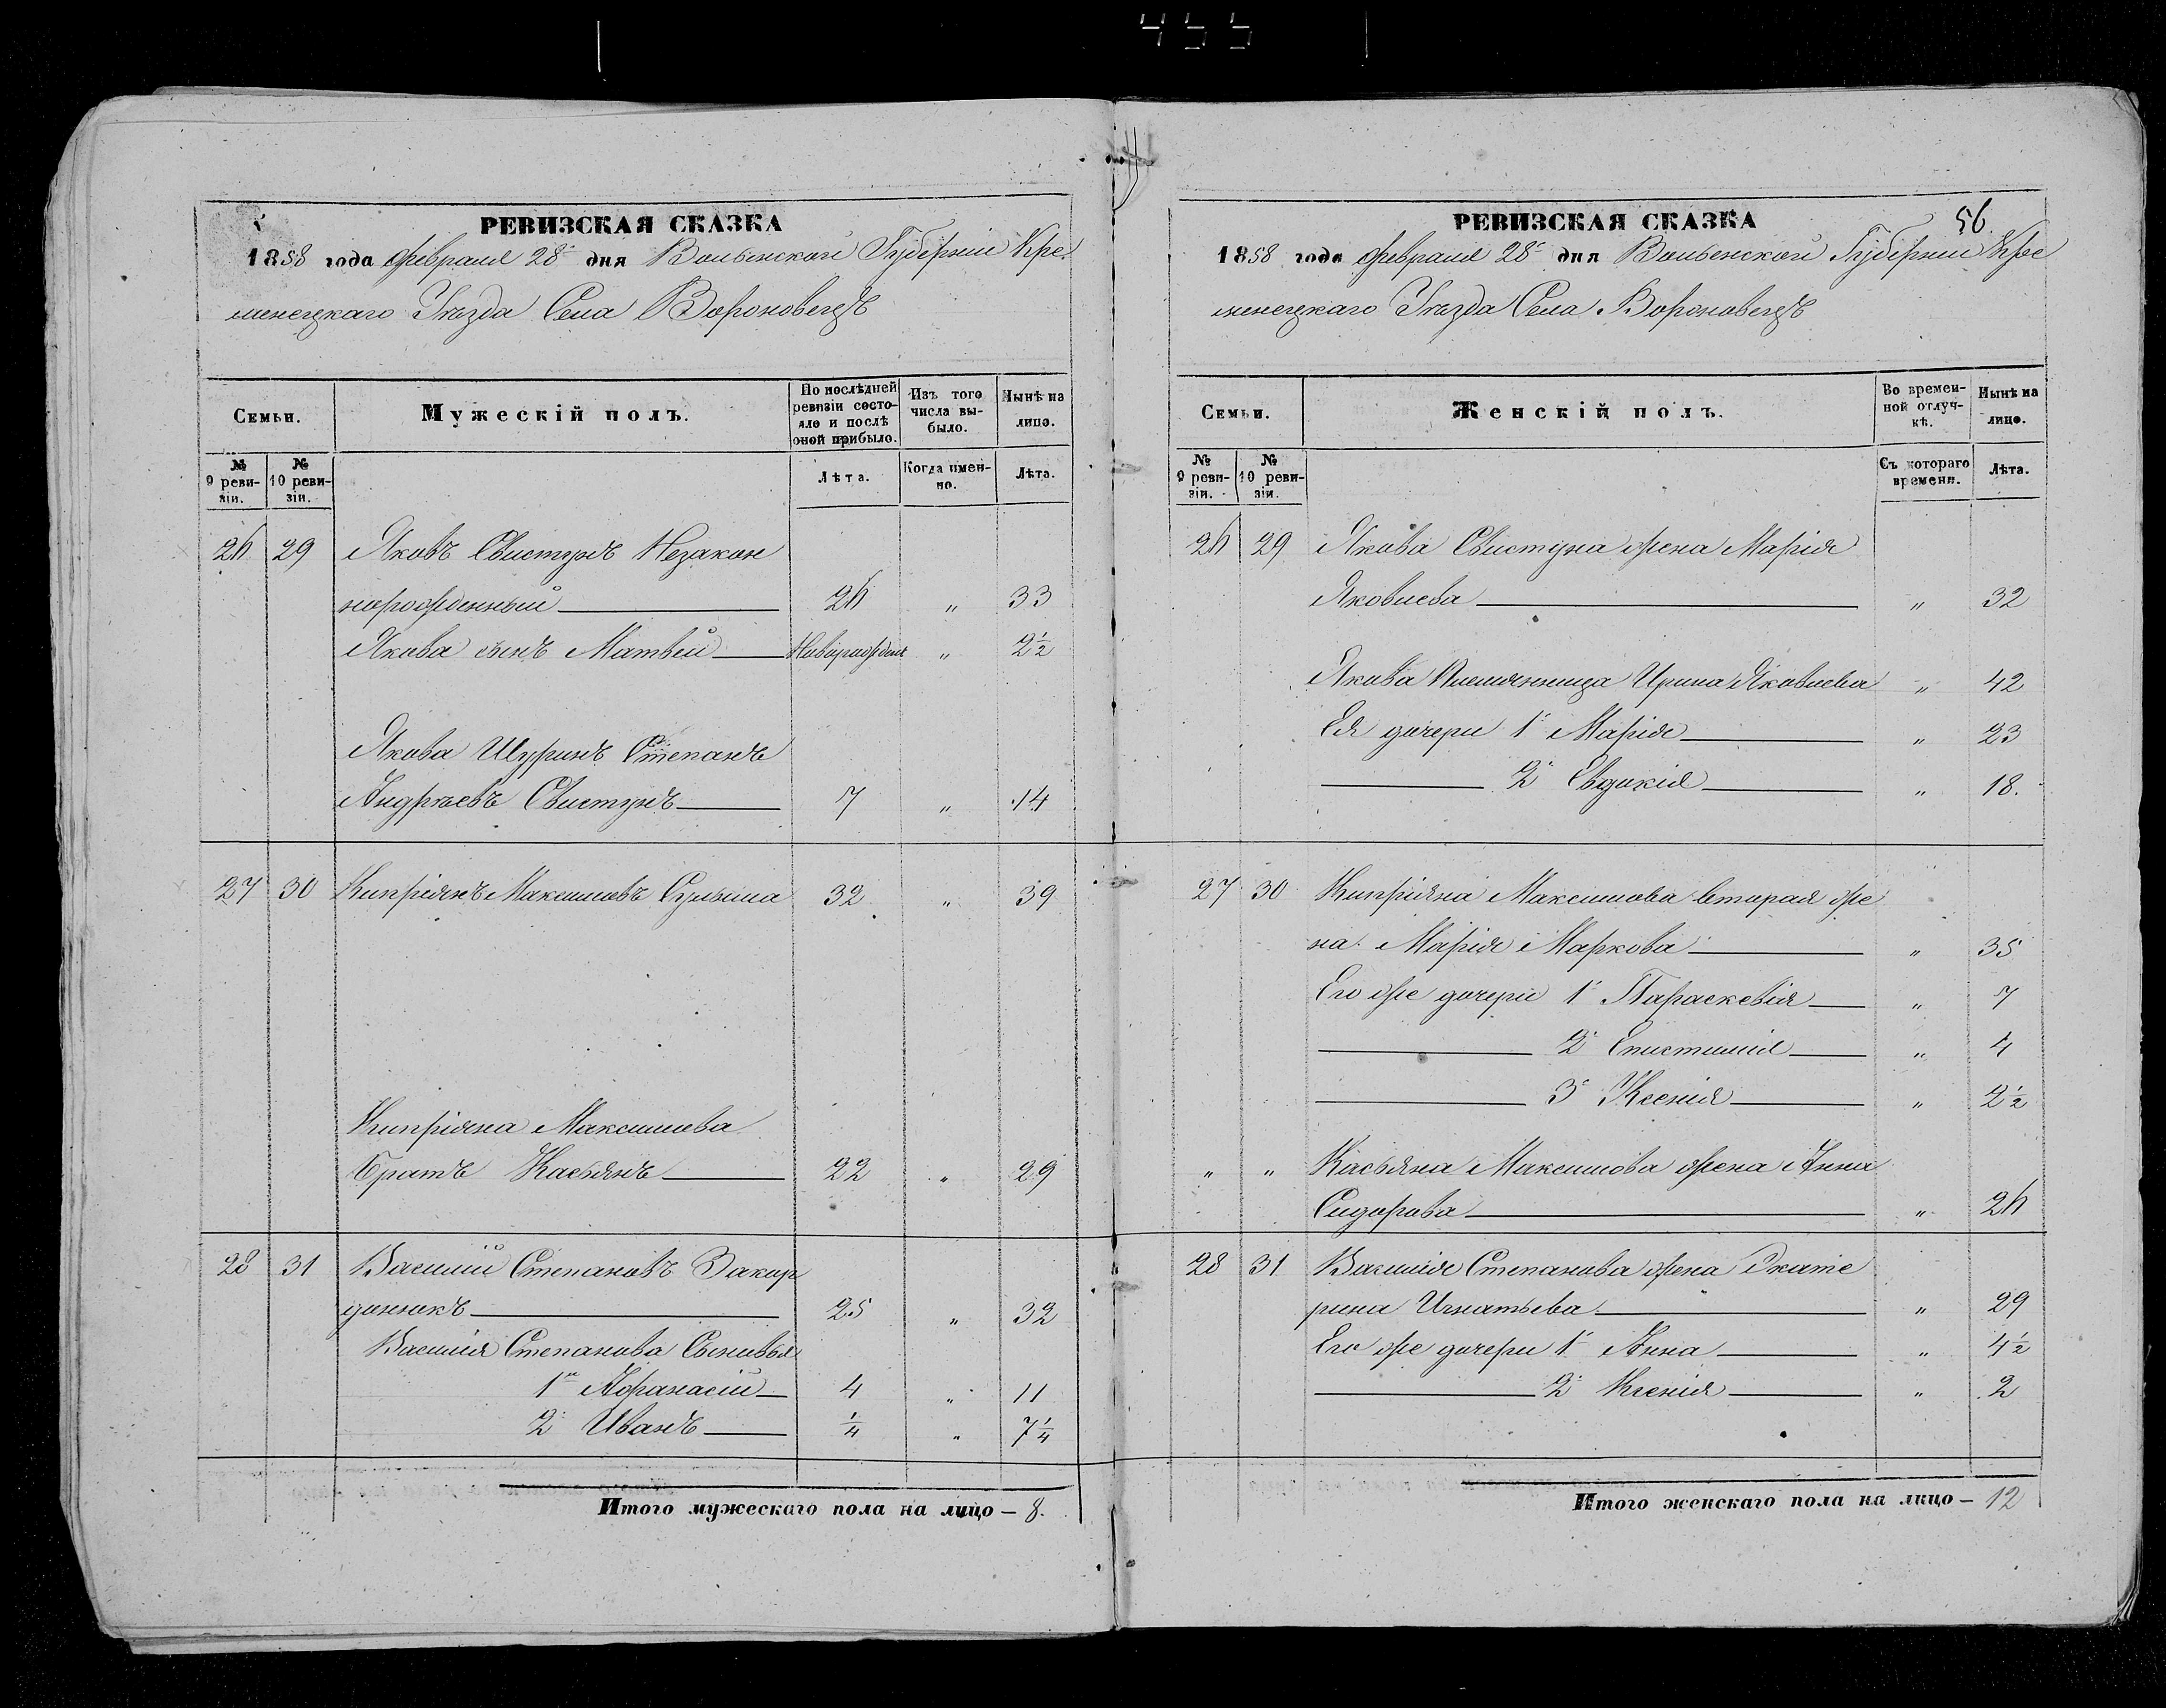 455
РЕВИЗСКАЯ СКАЗКА
1858 года Февраля 28 дня Волынской Губерніи Кре
менецкаго Уѣзда Села Вороновець
Семьи.
Мужескій полъ.
По послѣдней ревизіи состояло и послѣ оной прибыло.
Изъ того числа выбыло.
Нынѣ на лицо.
№ 9 ревизіи.
№ 10 ревизіи.
Лѣта.
Когда именно.
Лѣта.
26 29 Яковъ Свистунъ Незакон
норожденный 26 „ 33
Якова сынъ Матвей Новорожден „ 2½
Якова Шуринъ Степанъ
Андреевъ Свистунъ 7 „ 14
27 30 Кипріянъ Максимовъ 32 „ 39
Кипріяна Максимова
Братъ Касьянъ 22 „ 29
28 31 Василий Степановъ Закор
донникъ 25 „ 32
Василия Степанова Сыновья
1й Афанасій 4 „ 11
2й Иванъ ¼ „ 7¼
Итого мужескаго пола на лицо — 8.
РЕВИЗСКАЯ СКАЗКА
56
1858 года Февраля 28 дня Волынской Губерніи Кре
менецкаго Уѣзда Села Вороновець
Семьи.
Женскій полъ.
Во временной отлучкѣ.
Нынѣ на лицо.
№ 9 ревизіи.
№ 10 ревизіи.
Съ котораго времени.
Лѣта.
26 29 Якова Свистуна жена Марія
Яковлева „ 32
Якова Племянница Ирина Яковлева „ 42
Ея дочери 1 Марія „ 23
2 Евдокія „ 18.
27 30 Кипріяна Максимова вторая же
на Марія Маркова „ 35
Его же дочери 1 Параскевія „ 7
2 Епистимія „ 4
3 Ксенія „ 2½
„ „ Касьяна Максимова жена Анна
Сидорова „ 26
28 31 Василия Степанова жена Екате
рина Игнатьева „ 29
Его же дочери 1 Анна „ 4½
2 Ксенія „ 2
Итого женскаго пола на лицо — 12